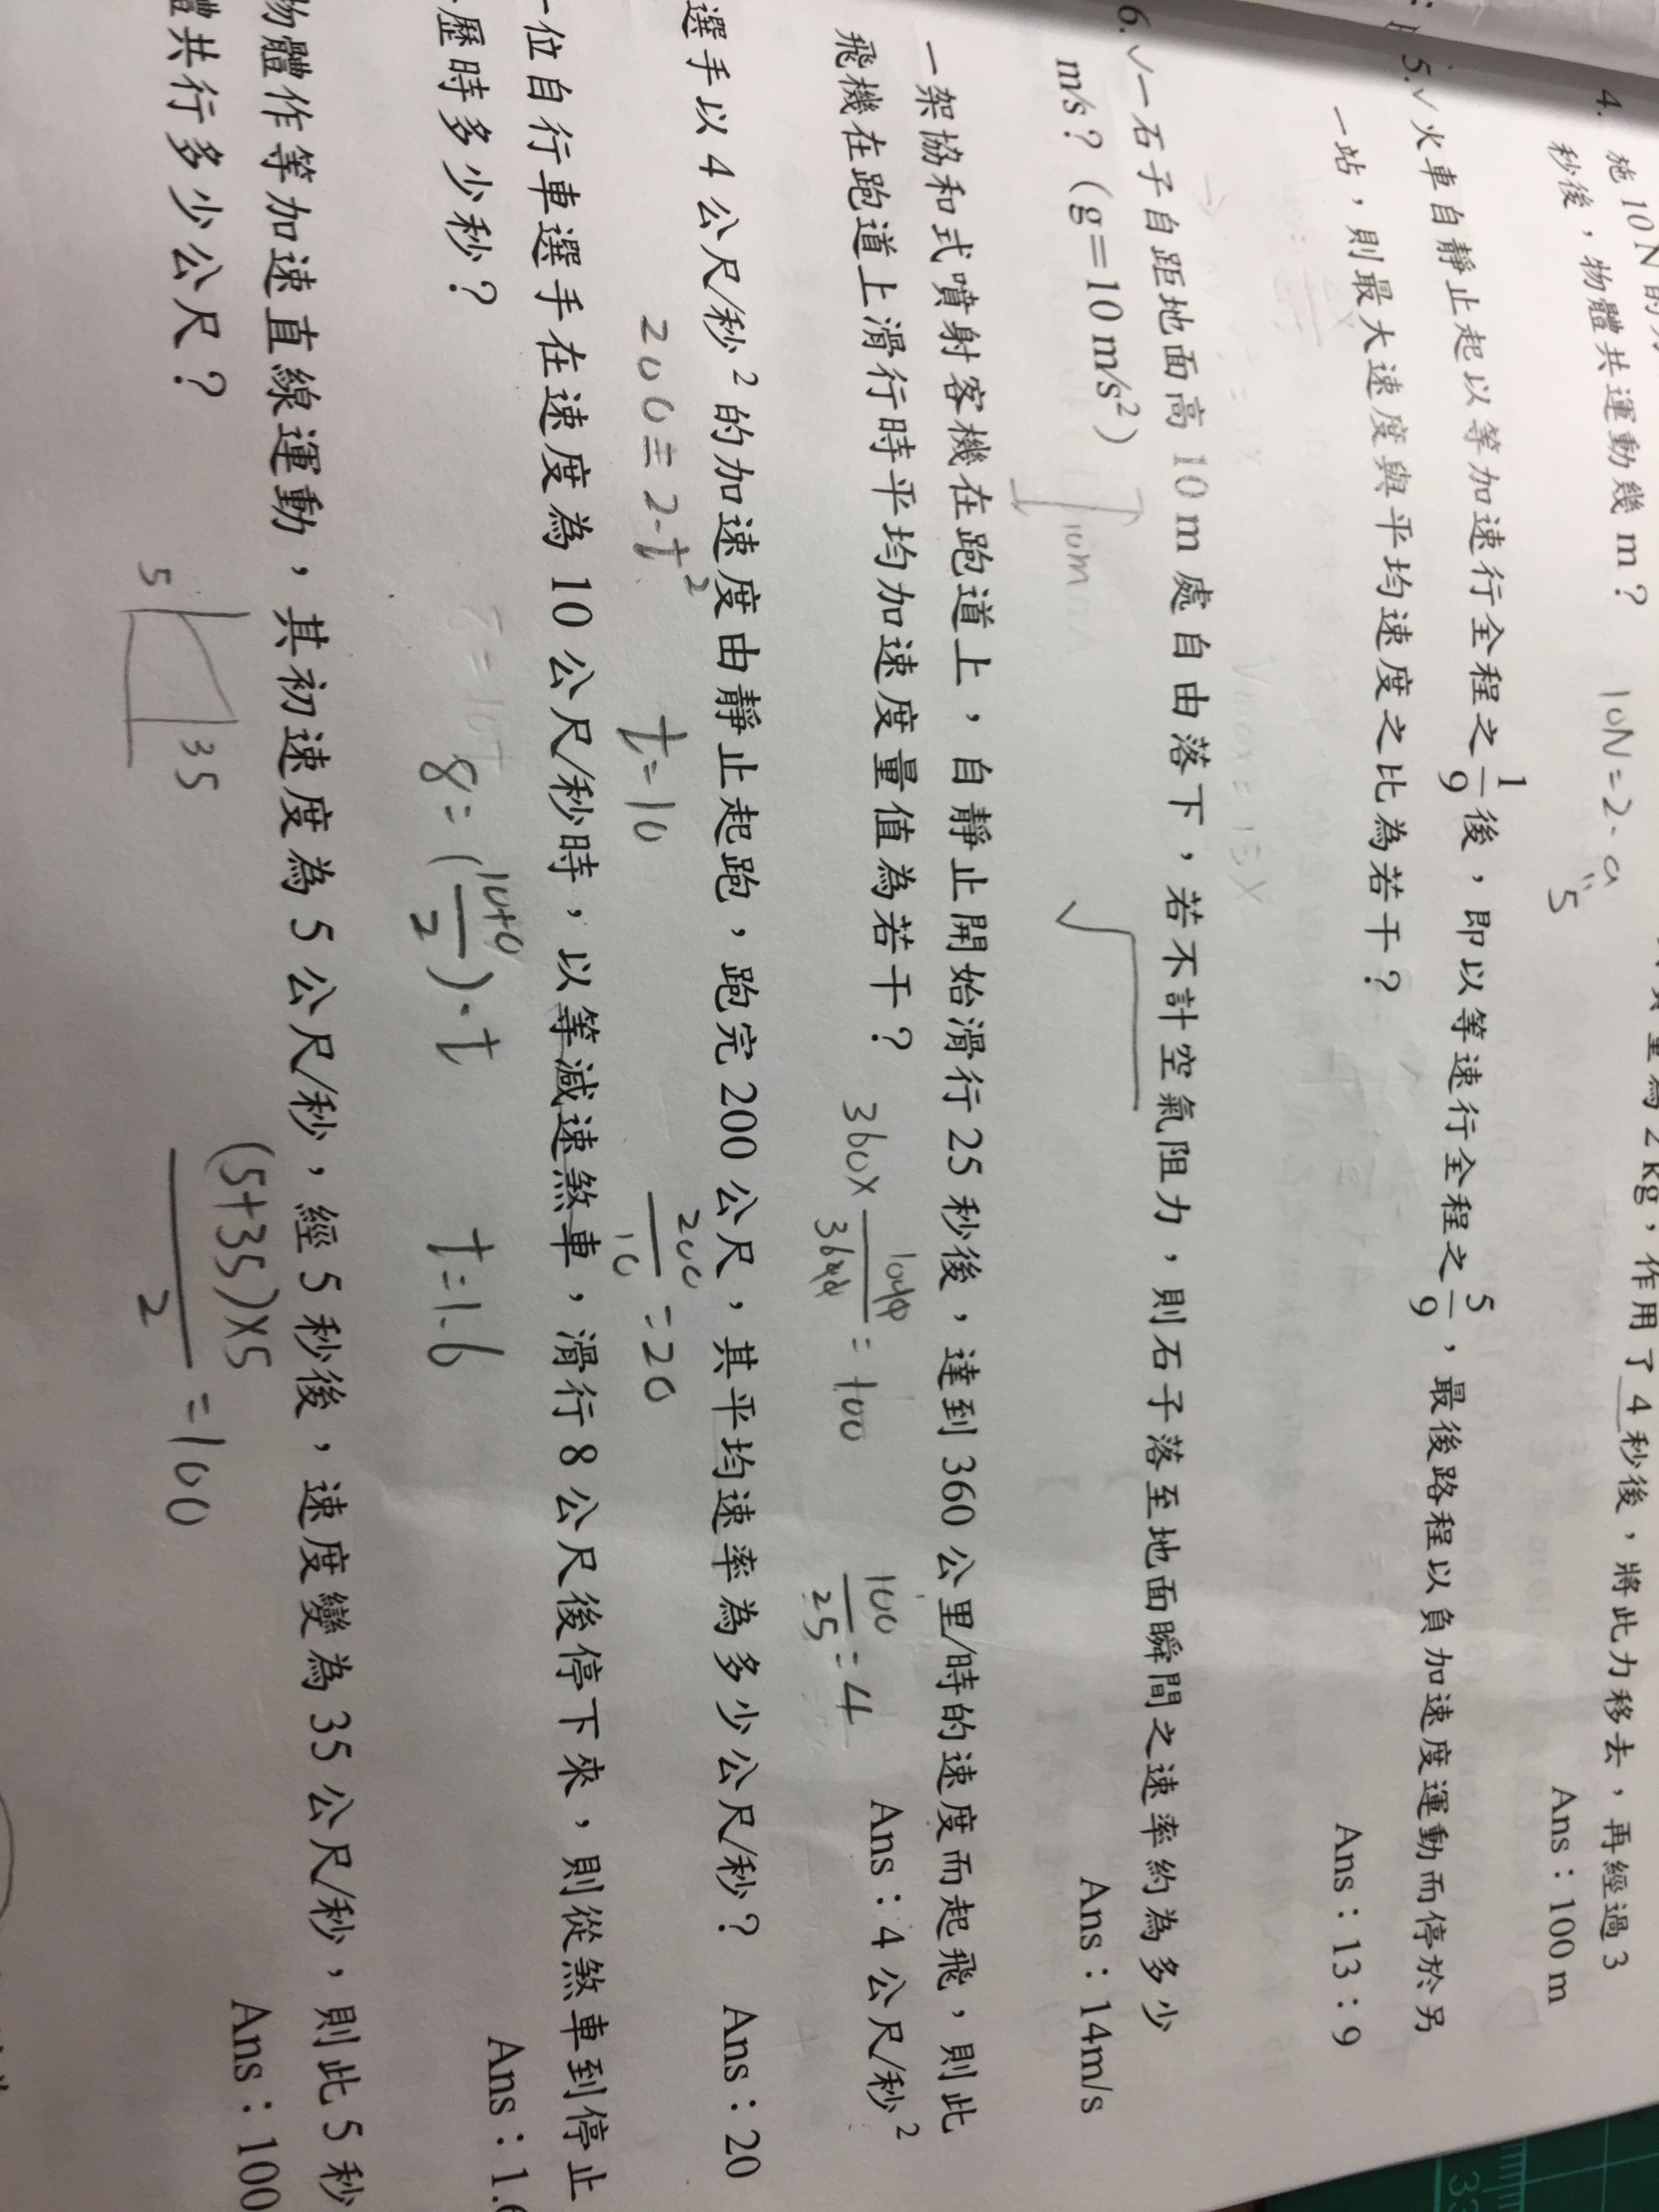 4. 施 10 N 的力 量為 2 kg，作用了 4 秒後，將此力移去，再經過 3
秒後，物體共運動幾 m？ Ans：100 m
10N = 2·a
"5
5.✓火車自靜止起以等加速行全程之 1/9 後，即以等速行全程之 5/9，最後路程以負加速度運動而停於另
一站，則最大速度與平均速度之比為若干？ Ans：13：9
6.✓一石子自距地面高 10 m 處自由落下，若不計空氣阻力，則石子落至地面瞬間之速率約為多少
m/s？(g＝10 m/s²) Ans：14m/s
10m
一架協和式噴射客機在跑道上，自靜止開始滑行 25 秒後，達到 360 公里/時的速度而起飛，則此
飛機在跑道上滑行時平均加速度量值為若干？ Ans：4 公尺/秒²
360× = 100 100/25 = 4
選手以 4 公尺/秒² 的加速度由靜止起跑，跑完 200 公尺，其平均速率為多少公尺/秒？ Ans：20
200 = 2·t² t=10 200/10 = 20
一位自行車選手在速度為 10 公尺/秒時，以等減速煞車，滑行 8 公尺後停下來，則從煞車到停止
歷時多少秒？ Ans：1.6
8 = (10+0/2)·t t=1.6
物體作等加速直線運動，其初速度為 5 公尺/秒，經 5 秒後，速度變為 35 公尺/秒，則此 5 秒
體共行多少公尺？ Ans：100
5 35 (5+35)×5/2 = 100